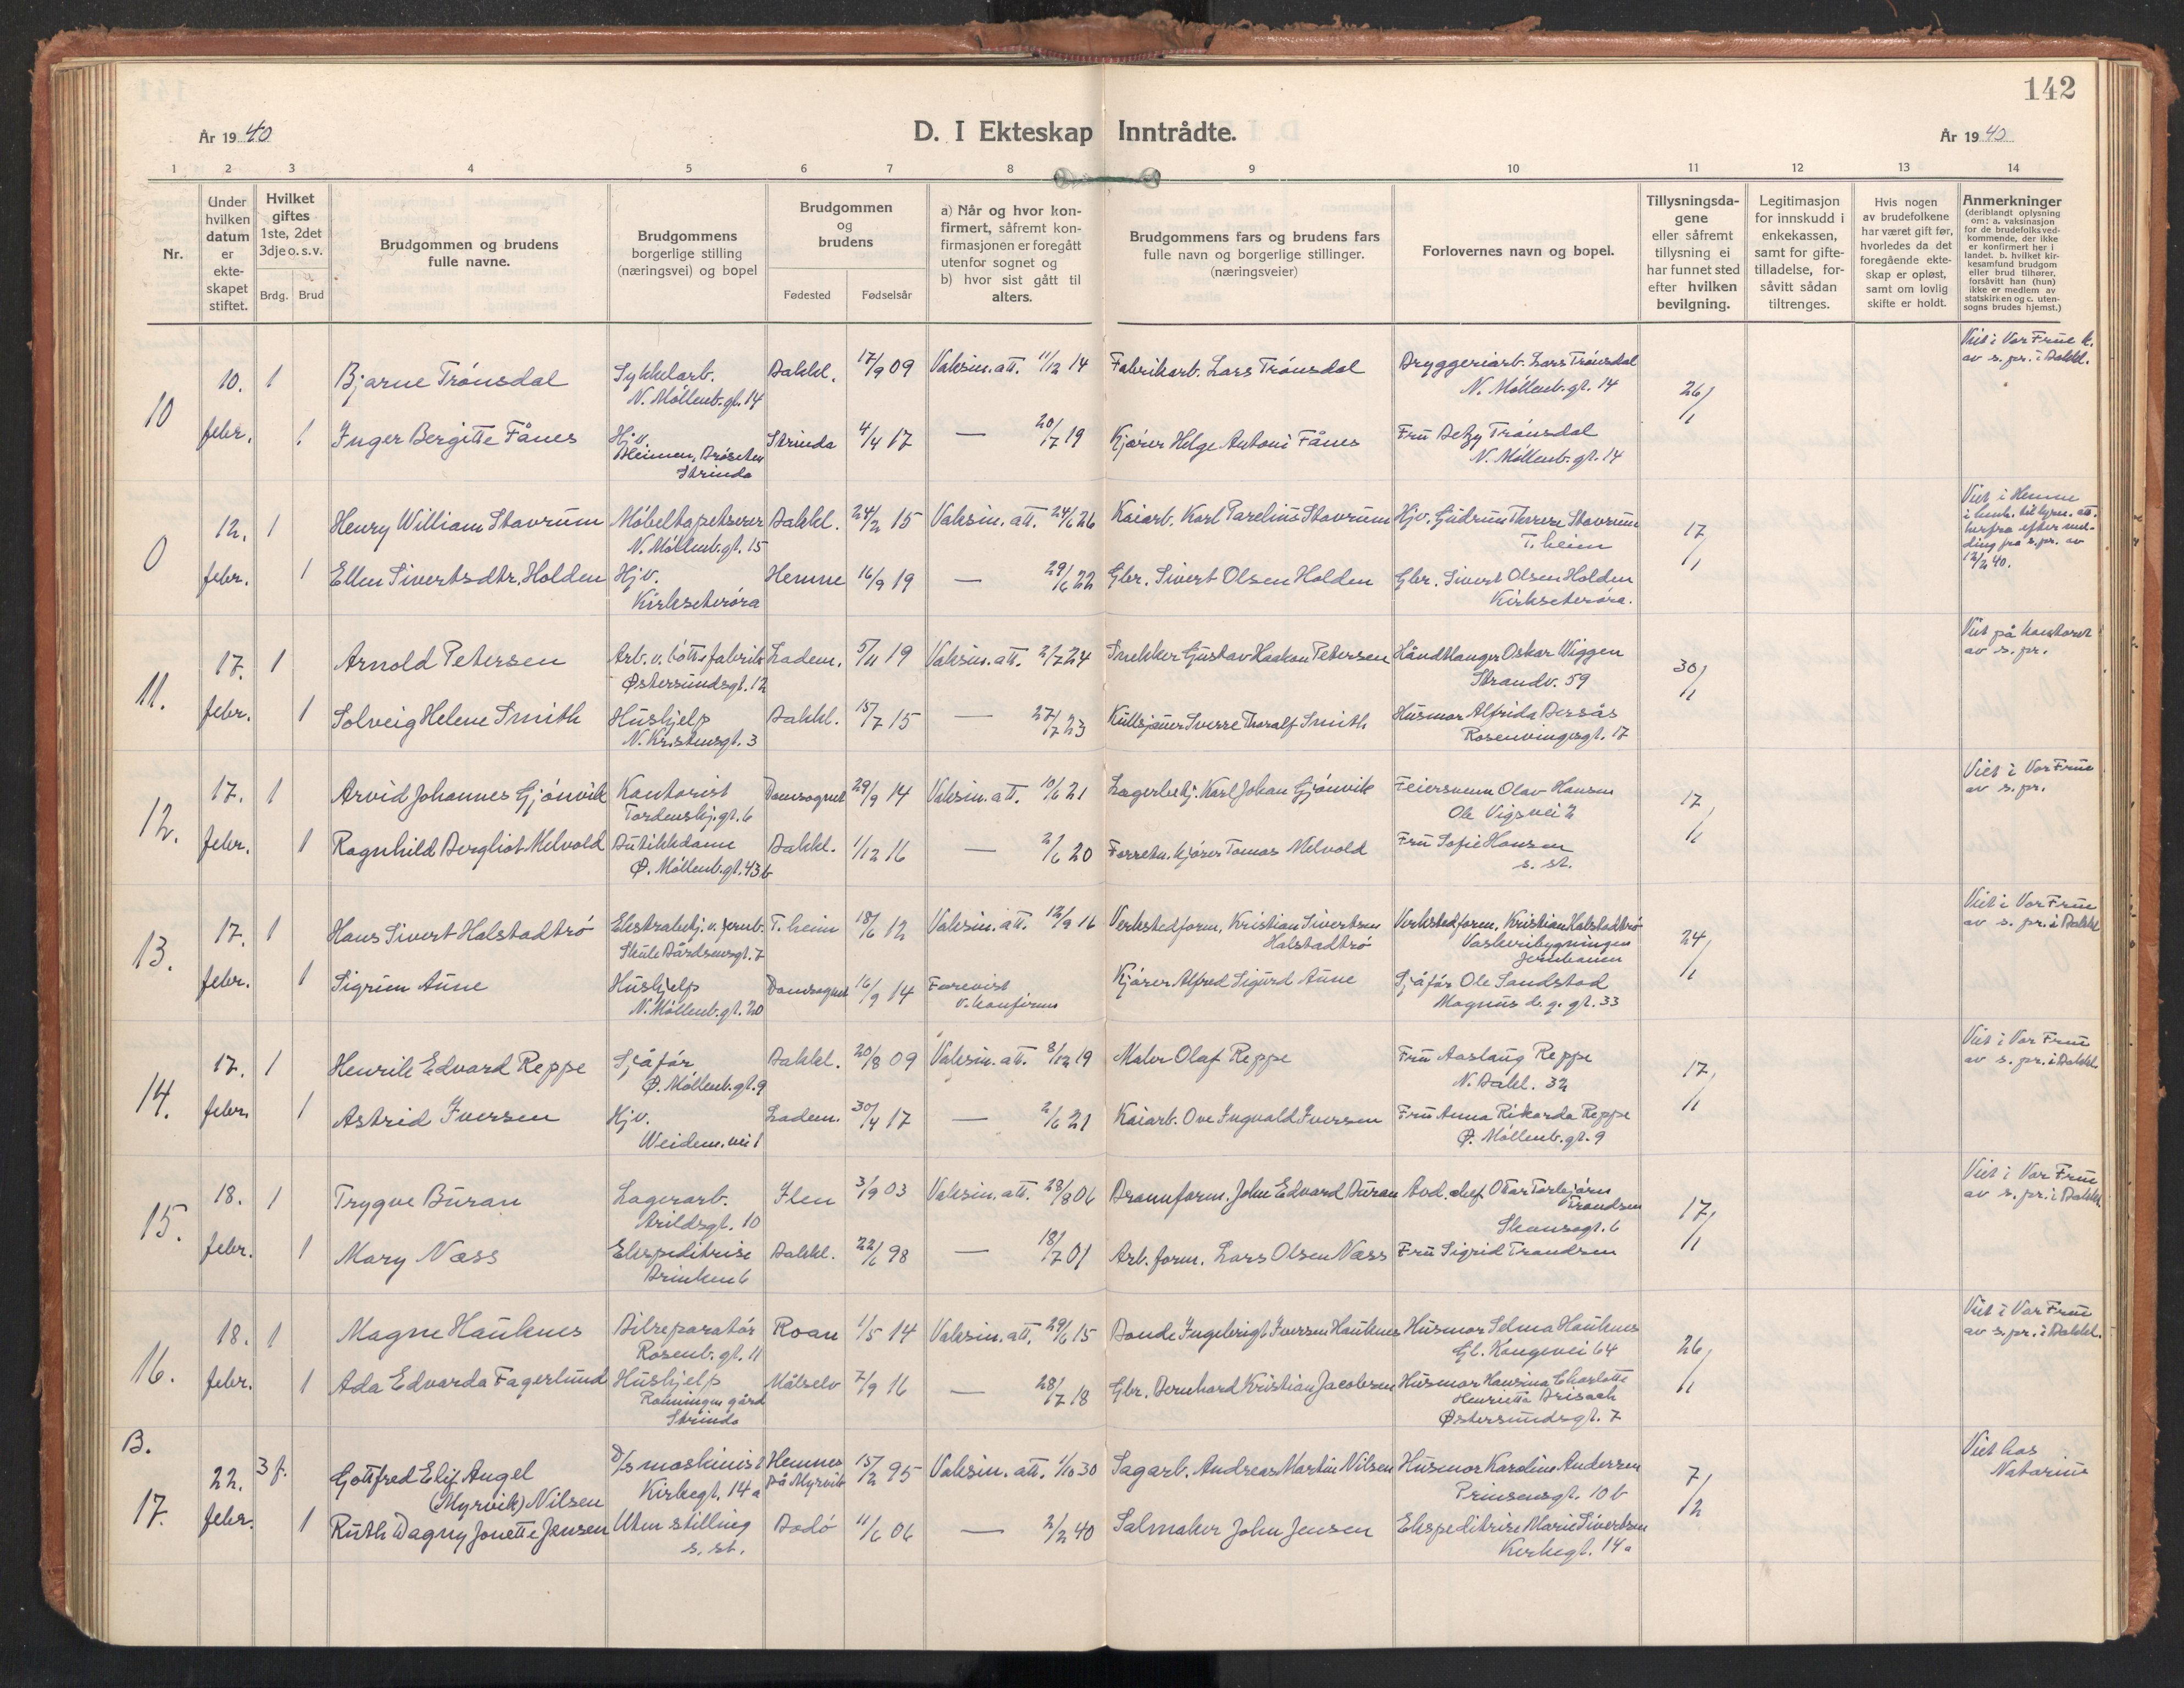 142
År 1940
D. I Ekteskap Inntrådte.
År 1940
1 2 3 4 5 6 7 8 9 10 11 12 13 14
Nr.
Under hvilken datum er ekte- skapet stiftet.
Hvilket giftes 1ste, 2det 3dje o. s. v.
Brdg. Brud
Brudgommen og brudens fulle navne.
Brudgommens borgerlige stilling (næringsvei) og bopel
Brudgommen og brudens
Fødested Fødselsår
a) Når og hvor kon- firmert, såfremt kon- firmasjonen er foregått utenfor sognet og b) hvor sist gått til alters.
Brudgommens fars og brudens fars fulle navn og borgerlige stillinger. (næringsveier)
Forlovernes navn og bopel.
Tillysningsda- gene eller såfremt tillysning ei har funnet sted efter hvilken bevilgning.
Legitimasjon for innskudd i enkekassen, samt for gifte- tilladelse, for- såvitt sådan tiltrenges.
Hvis nogen av brudefolkene har været gift før, hvorledes da det foregående ekte- skap er opløst, samt om lovlig skifte er holdt.
Anmerkninger (deriblandt oplysning om: a. vaksinasjon for de brudefolks ved- kommende, der ikke er konfirmert her i landet. b. hvilket kir- kesamfund brudgom eller brud tilhører, forsåvitt han (hun) ikke er medlem av statskirken og c. uten- sogns brudes hjemst.)
10 10. 1 Bjarne Trønsdal Sykkelarb. Bakkl. 17/9 09 Vaksin. att. 11/12 14 Fabrikarb. Lars Trønsdal Bryggeriarb. Lars Trønsdal 26/1 Viet i Vor Frue k.
N. Møllenb. gt. 14 N. Møllenb. gt. 14 av s. pr. i Bakkl.
febr. 1 Inger Bergitte Fånes Hjv. Strinda 4/4 17 — 20/7 19 Kjører Helge Antoni Fånes Fru Betzy Trønsdal
Strinda N. Møllenb. gt. 14
0 12. 1 Henry William Stavrum Møbeltapetserer Bakkl. 24/2 15 Vaksin. att. 24/6 26 Kaiarb. Karl Parelius Stavrum Hjv. Gudrun Therese Stavrum 17/1 Viet i Hemne
N. Møllenb. gt. 15 T.heim
febr. 1 Ellen Sivertsdtr. Holden Hjv. Hemne 16/9 19 — 29/6 22 Gbr. Sivert Olsen Holden Gbr. Sivert Olsen Holden
Kirkseterøra Kirkseterøra.
12/2 40.
11. 17. 1 Arnold Petersen Arb. v. bøttefabrik Ladem. 5/11 19 Vaksin. att. 2/7 24 Snekker Gustav Haakon Petersen Håndtlanger Oskar Wiggen 30/1 Viet på kontoret
Østersundsgt. 12 Strandv. 59 av s. pr.
febr. 1 Solveig Helene Smith Hushjelp Bakkl. 15/7 15 — 27/7 23 Kullsjauer Sverre Thoralf Smith Husmor Alfrida Bersås
N. Kristensgt. 3 Rosenvingesgt. 17
12. 17. 1 Arvid Johannes Gjønvik Kontorist Domsognet 29/9 14 Vaksin. att. 10/6 21 Lagerbetj. Karl Johan Gjønvik Feiersvenn Olav Hansen 17/1 Viet i Vor Frue
Tordenskj. gt. 6 Ole Vigsvei 2 av s. pr.
febr. 1 Ragnhild Bergliot Melvold Butikkdame Bakkl. 1/12 16 — 2/6 20 Forretn. kjører Tomas Melvold Fru Sofie Hansen
Ø. Møllenb. gt. 43 b s. st.
13. 17. 1 Hans Sivert Halstadtrø Ekstrabetj. v. jernb. T.heim 18/6 12 Vaksin. att. 12/9 16 Verkstedform. Kristian Sivertsen Verkstedform. Kristian Halstadtrø 24/1 Viet i Vor Frue
Skule Bårdsensgt. 7 Halstadtrø Vaskeribygningen av s. pr. i Bakkl
Jernbanen
febr. 1 Sigrun Aune Hushjelp Domsognet 16/9 14 Forevist Kjører Alfred Sigurd Aune Sjåfør Ole Sandstad
N. Møllenb. gt. 20 v. konfirm Magnus d. g. gt. 33
14. 17. 1 Henrik Edvard Reppe Sjåfør Bakkl. 20/8 09 Vaksin. att. 8/12 19 Maler Olaf Reppe Fru Aaslaug Reppe 17/1 Viet i Vor Frue
Ø. Møllenb. gt. 9 N. Bakl. 32 av s. pr. i Bakkl.
febr. 1 Astrid Iversen Hjv. Ladem. 30/4 17 — 2/6 21 Kaiarb. Ove Ingvald Iversen Fru Anna Rikarda Reppe
Weidem. vei 1 Ø. Møllenb. gt. 9
15. 18. 1 Trygve Buran Lagerarb. Ilen 3/9 03 Vaksin. att. 28/8 06 Brannform. John Edvard Buran Avd. chef Ottar Torbjørn 17/1 Viet i Vor Frue
Arildsgt. 10 Trondsen av s. pr. i Bakkl
Skansegt. 6
febr. 1 Mary Næss Ekspeditrise Bakkl. 22/6 98 — 18/7 01 Arb. form. Lars Olsen Næss Fru Sigrid Trondsen
Brinken 6
16. 18. 1 Magne Hauknes Bilreparatør Roan 1/5 14 Vaksin. att. 29/6 15 Bonde Ingebrigt Iversen Hauknes Husmor Selma Hauknes 26/1 Viet i Vor Frue
Rosenb. gt. 11 Gl. Kongevei 64 av s. pr. i Bakkl.
febr. 1 Ada Edvarda Fagerlund Hushjelp Målselv 7/9 16 — 28/7 18 Gbr. Bernhard Kristian Jacobsen Husmor Hansina Charlotte
Rønningen gård Henriette Brisach
Strinda Østersundsgt. 7
B.
17. 22. 3 f. Gottfred Elif Angel D/s maskinist Hemnes 15/2 95 Vaksin. att. 1/10 30 Sagarb. Andreas Martin Nilsen Husmor Karoline Andersen 7/2 Viet hos
(Myrvik) Nilsen Kirkegt. 14 a på Myrvik Prinsensgt. 10 b Notarius
febr. 1 Ruth Dagny Jonette Jensen Uten stilling Bodø 11/6 06 — 2/2 40 Salmaker John Jensen Ekspeditrise Marie Sivertsen
s. st. Kirkegt. 14 a